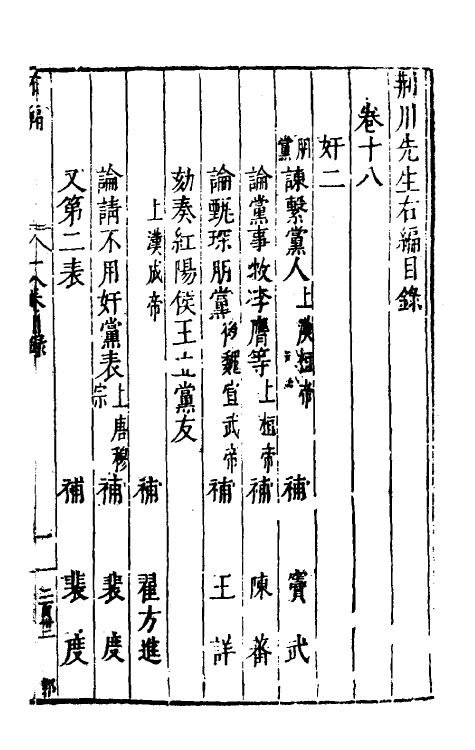 荆川先生右編目錄
卷十八
奸二
朋黨 諫繫黨人 上漢桓帝 補 竇武
論黨事救李膺等 上桓帝 補 陳蕃
論甄琛朋黨 後魏宣武帝 補 王詳
劾奏紅陽侯王立黨友
上漢成帝 補 翟方進
論請不用奸黨表 上唐穆宗 補 裴度
又第二表 補 裴度
右編 十八卷目錄 郭